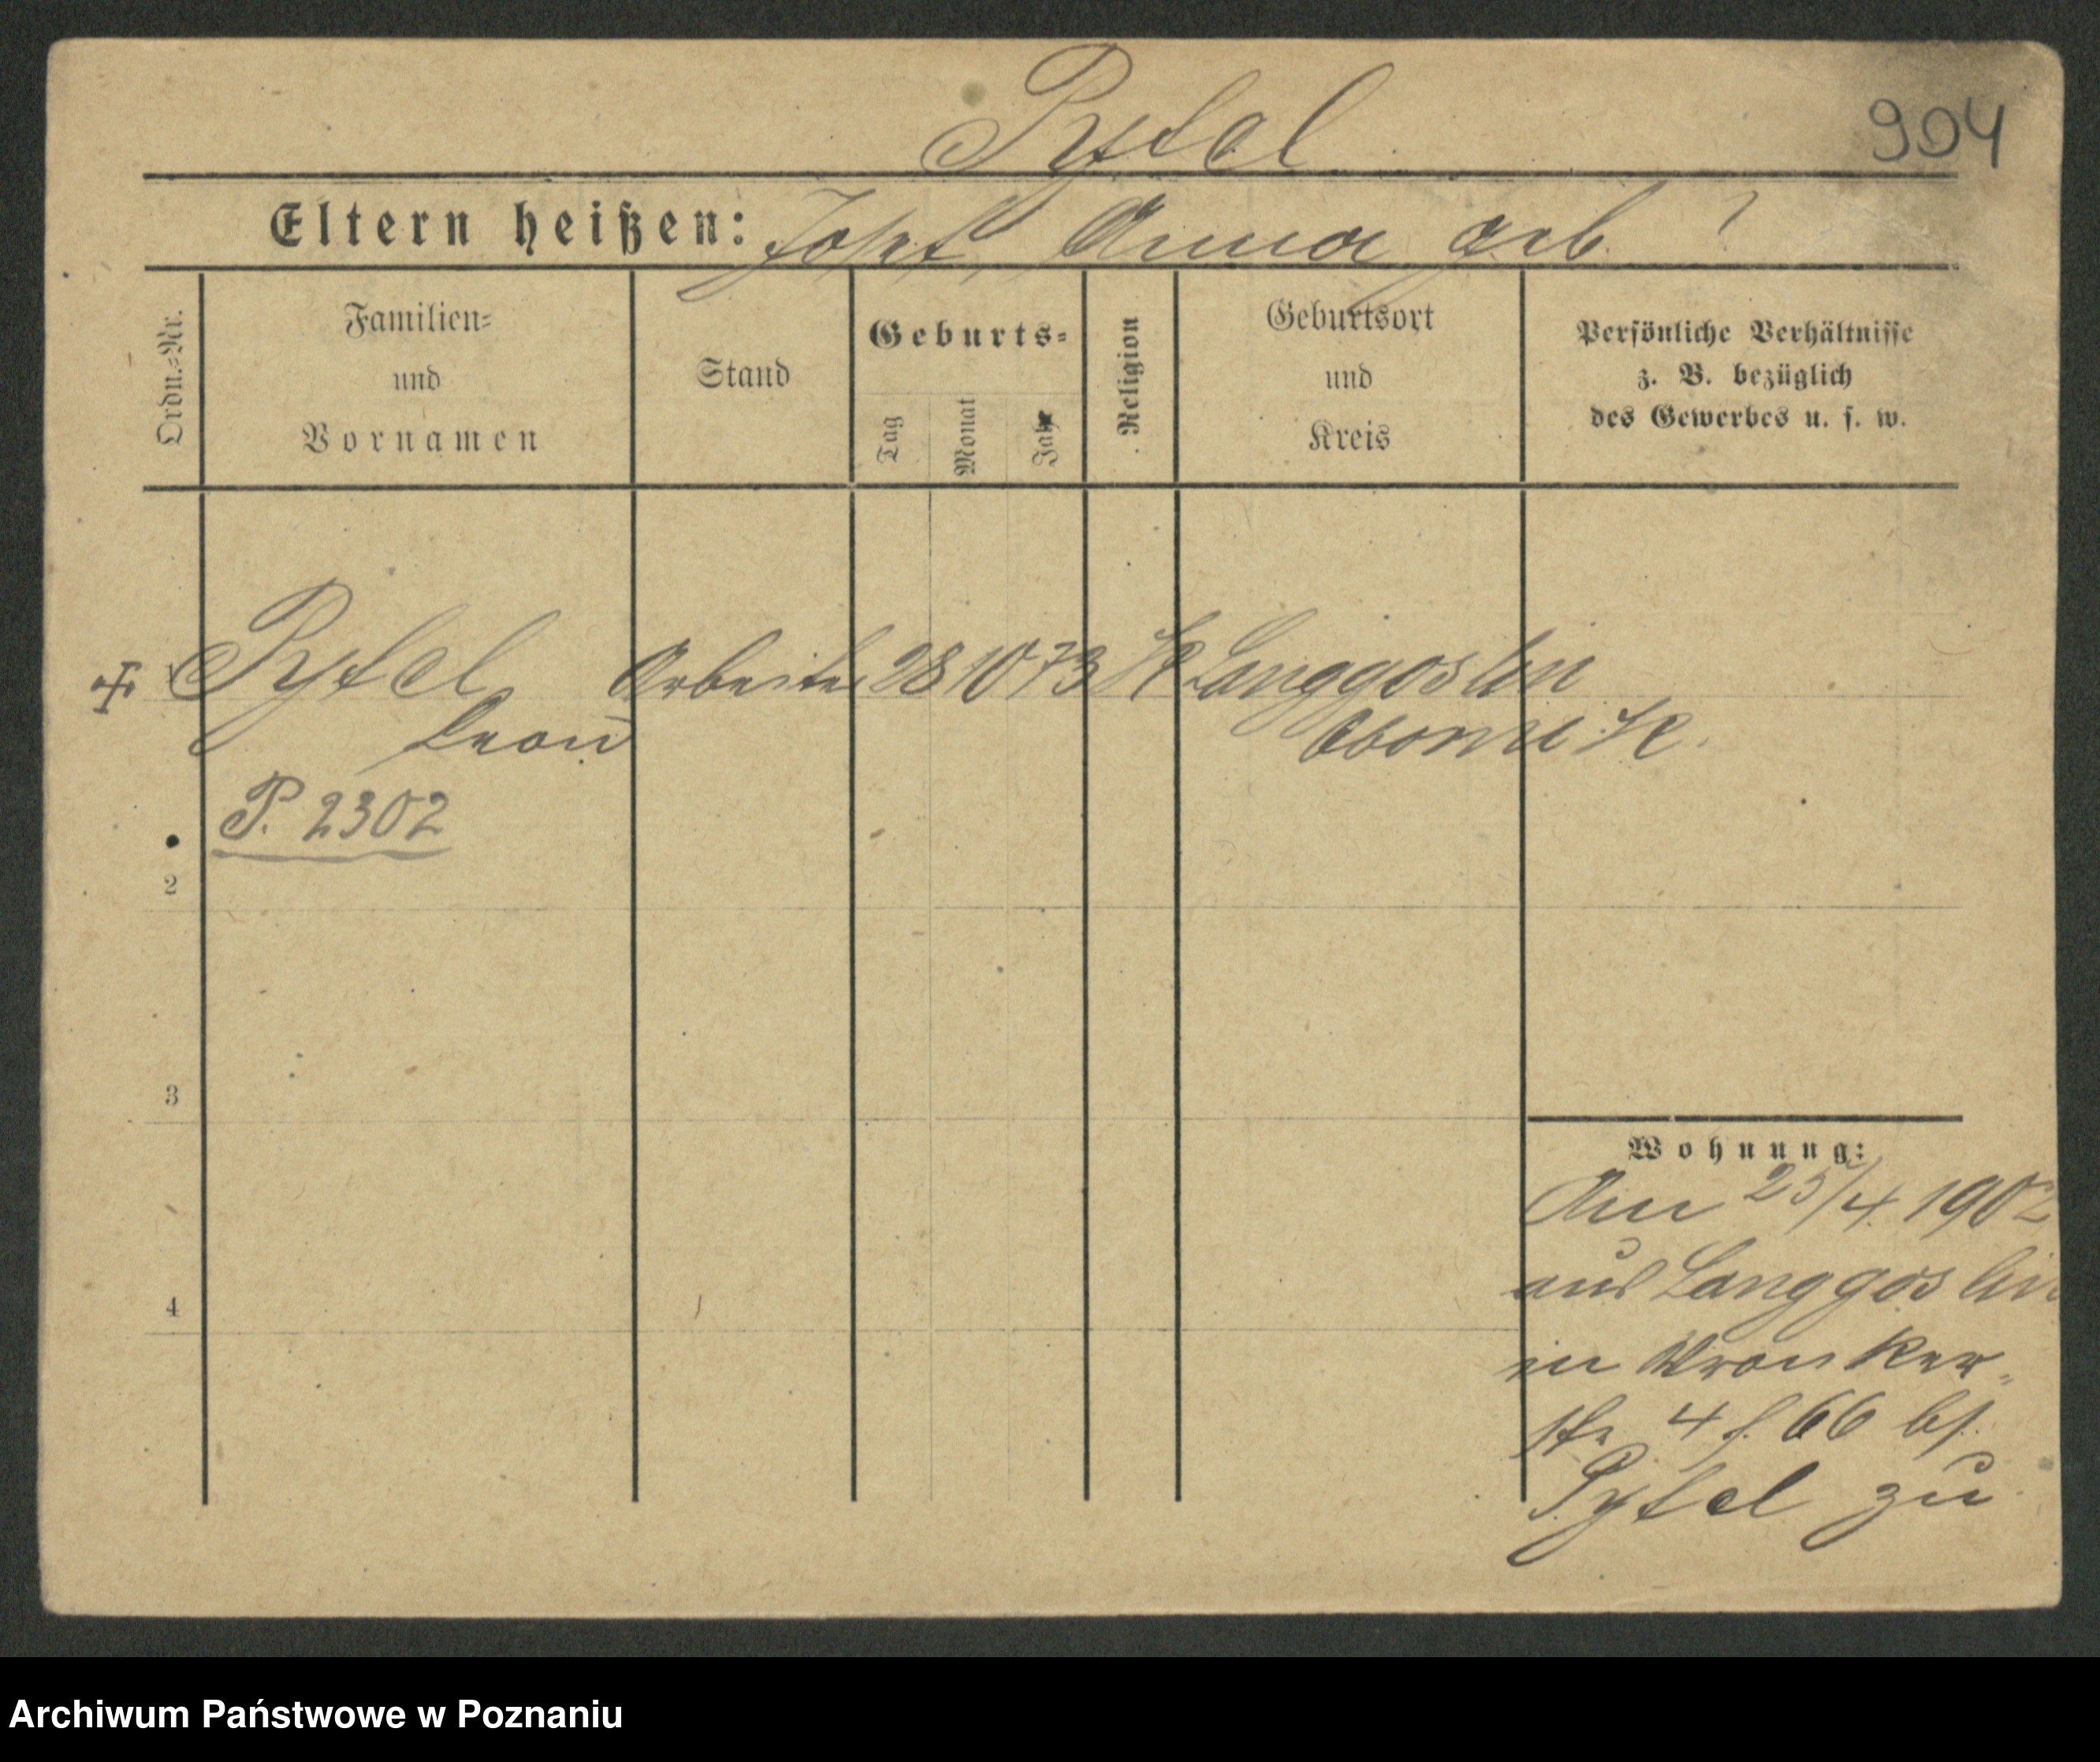 Pytel
904
Eltern heißen: Josef, Anna geb. ?
Ordn.=Nr.
Familien=
und
Vornamen
Stand
Geburts=
Tag
Monat
Jahr
Religion
Geburtsort
und
Kreis
Persönliche Verhältnisse
z. B. bezüglich
des Gewerbes u. s. w.
Pytel Arbeiter 28 10 73 K Langgoslin
Leon Obornik
P. 2302
2
3
4
Wohnung:
Am 25/4. 1902
aus Langgoslin
in Wronker=
str 4 f. 66 bs.
Pytel zu
Archiwum Państwowe w Poznaniu